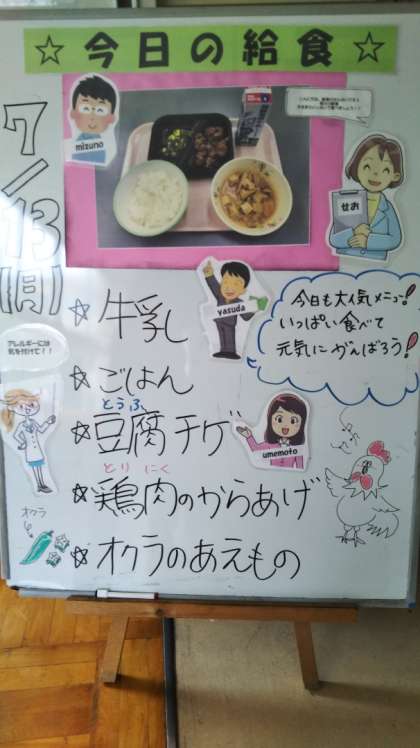 ☆今日の給食☆
7/13(月)
mizuno
せお
yasuda
☆牛乳
今日も大人気メニュー!
いっぱい食べて
元気にがんばろう!
アレルギーには
気を付けて!!
☆ごはん
とうふ
☆豆腐チゲ
umemoto
とり にく
☆鶏肉のからあげ
オクラ
☆オクラのあえもの